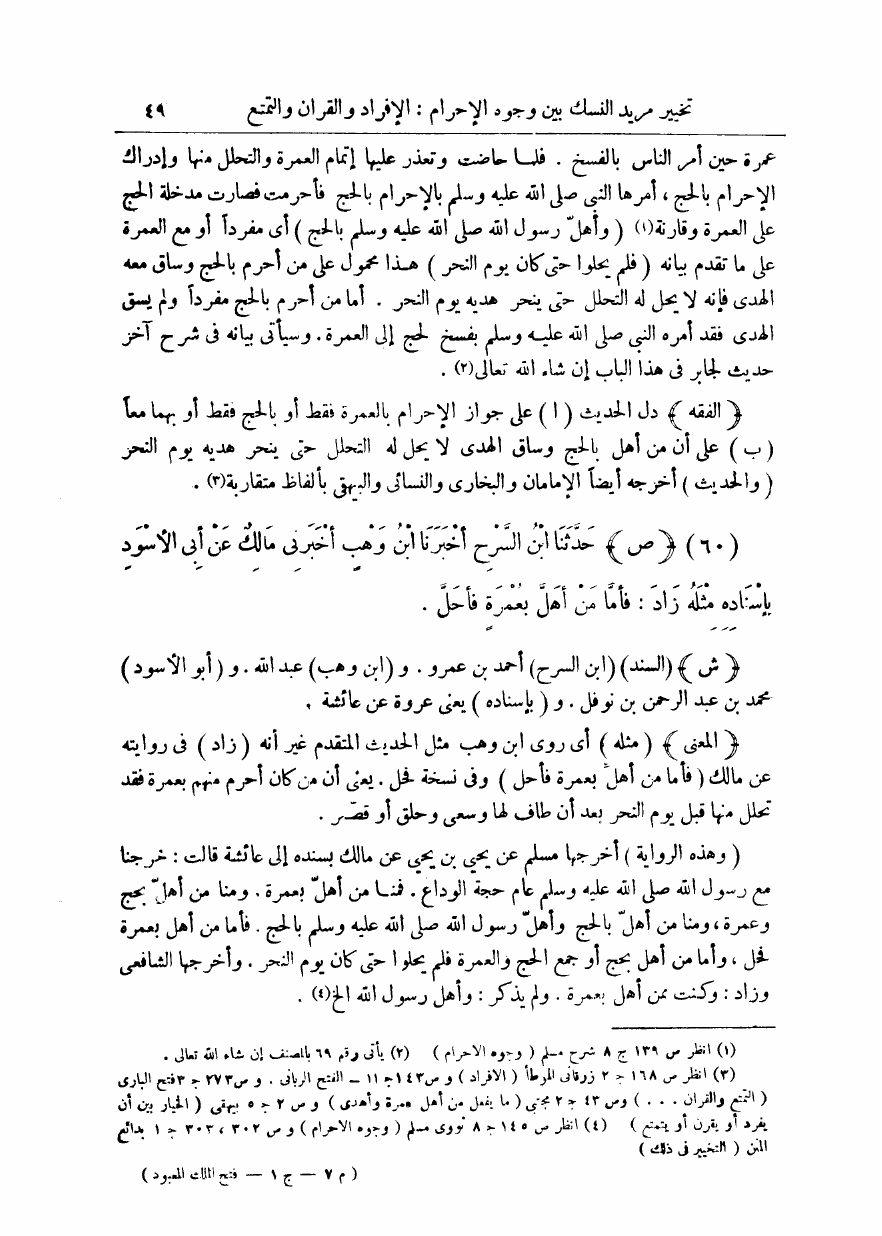 تخيير مريد النسك بين وجوه الإحرام : الإفراد والقران والتمتع ٤٩
عمرة حين أمر الناس بالفسخ . فلمـا حاضت وتعذر عليها إتمام العمرة والتحلل منها وإدراك
الإحرام بالحج ، أمرها النبى صلى الله عليه وسلم بالإحرام بالحج فأحرمت فصارت مدخلة الحج
على العمرة وقارنة(١) ( وأهلّ رسول الله صلى الله عليه وسلم بالحج ) أى مفرداً أو مع العمرة
على ما تقدم بيانه ( فلم يحلوا حتى كان يوم النحر ) هـذا محمول على من أحرم بالحج وساق معه
الهدى فإنه لا يحل له التحلل حتى ينحر هديه يوم النحر . أما من أحرم بالحج مفرداً ولم يسق
الهدى فقد أمره النبى صلى الله عليـه وسلم بفسخ لحج إلى العمرة . وسيأتى بيانه فى شرح آخر
حديث لجابر فى هذا الباب إن شاء الله تعالى(٢) .
﴿ الفقه ﴾ دل الحديث ( ا ) على جواز الإحرام بالعمرة فقط أو بالحج فقط أو بهما معاً
( ب ) على أن من أهل بالحج وساق الهدى لا يحل له التحلل حتى ينحر هديه يوم النحر
( والحديث ) أخرجه أيضاً الإمامان والبخارى والنسائى والبيهقى بألفاظ متقاربة(٣) .
(٦٠) ﴿ ص ﴾ حَدَّثَنَا ابْنُ السَّرْحِ أَخْبَرَنَا ابْنُ وَهْبٍ أَخْبَرَنِى مَالِكٌ عَنْ أَبِى الأَسْوَدِ
بِإِسْنَادِهِ مِثْلَهُ زَادَ : فَأَمَّا مَنْ أَهَلَّ بِعُمْرَةٍ فَأَحَلَّ .
﴿ ش ﴾ (السند) (ابن السرح) أحمد بن عمرو . و (ابن وهب) عبد الله . و ( أبو الأسود )
محمد بن عبد الرحمن بن نوفل . و ( بإسناده ) يعنى عروة عن عائشة .
﴿ المعنى ﴾ ( مثله ) أى روى ابن وهب مثل الحديث المتقدم غير أنه ( زاد ) فى روايته
عن مالك ( فأما من أهلّ بعمرة فأحل ) وفى نسخة فحل . يعنى أن من كان أحرم منهم بعمرة فقد
تحلل منها قبل يوم النحر بعد أن طاف لها وسعى وحلق أو قصّر .
( وهذه الرواية ) أخرجها مسلم عن يحيى بن يحيى عن مالك بسنده إلى عائشة قالت : خرجنا
مع رسول الله صلى الله عليه وسلم عام حجة الوداع . فمنـا من أهلّ بعمرة . ومنا من أهلّ بحج
وعمرة ، ومنا من أهلّ بالحج وأهلّ رسول الله صلى الله عليه وسلم بالحج . فأما من أهل بعمرة
فحل ، وأما من أهل بحج أو جمع الحج والعمرة فلم يحلوا حتى كان يوم النحر . وأخرجها الشافعى
وزاد : وكنت ممن أهل بعمرة . ولم يذكر : وأهل رسول الله الخ(٤) .
(١) انظر ص ١٣٩ ج ٨ شرح مسلم ( وجوه الاحرام ) (٢) يأتى رقم ٦٩ بالمصنف إن شاء الله تعالى .
(٣) انظر ص ١٦٨ ج ٢ زرقانى الموطأ ( الافراد ) و ص١٤٣ج ١١ – الفتح الربانى . و ص٢٧٣ ج ٣فتح البارى
( التمتع والقران . . . ) وص ٤٣ ج ٢ مجتبى ( ما يفعل من أهل بعمرة وأهدى ) و ص ٢ ج ٥ بيهقى ( الخيار بين أن
يفرد أو يقرن أو يتمتع ) (٤) انظر ص ١٤٥ ج ٨ نووى مسلم ( وجوه الاحرام ) و ص ٣٠٢ ، ٣٠٣ ج ١ بدائع
المنن ( التخيير فى ذلك )
( م ٧ – ج ١ – فتح الملك المعبود )